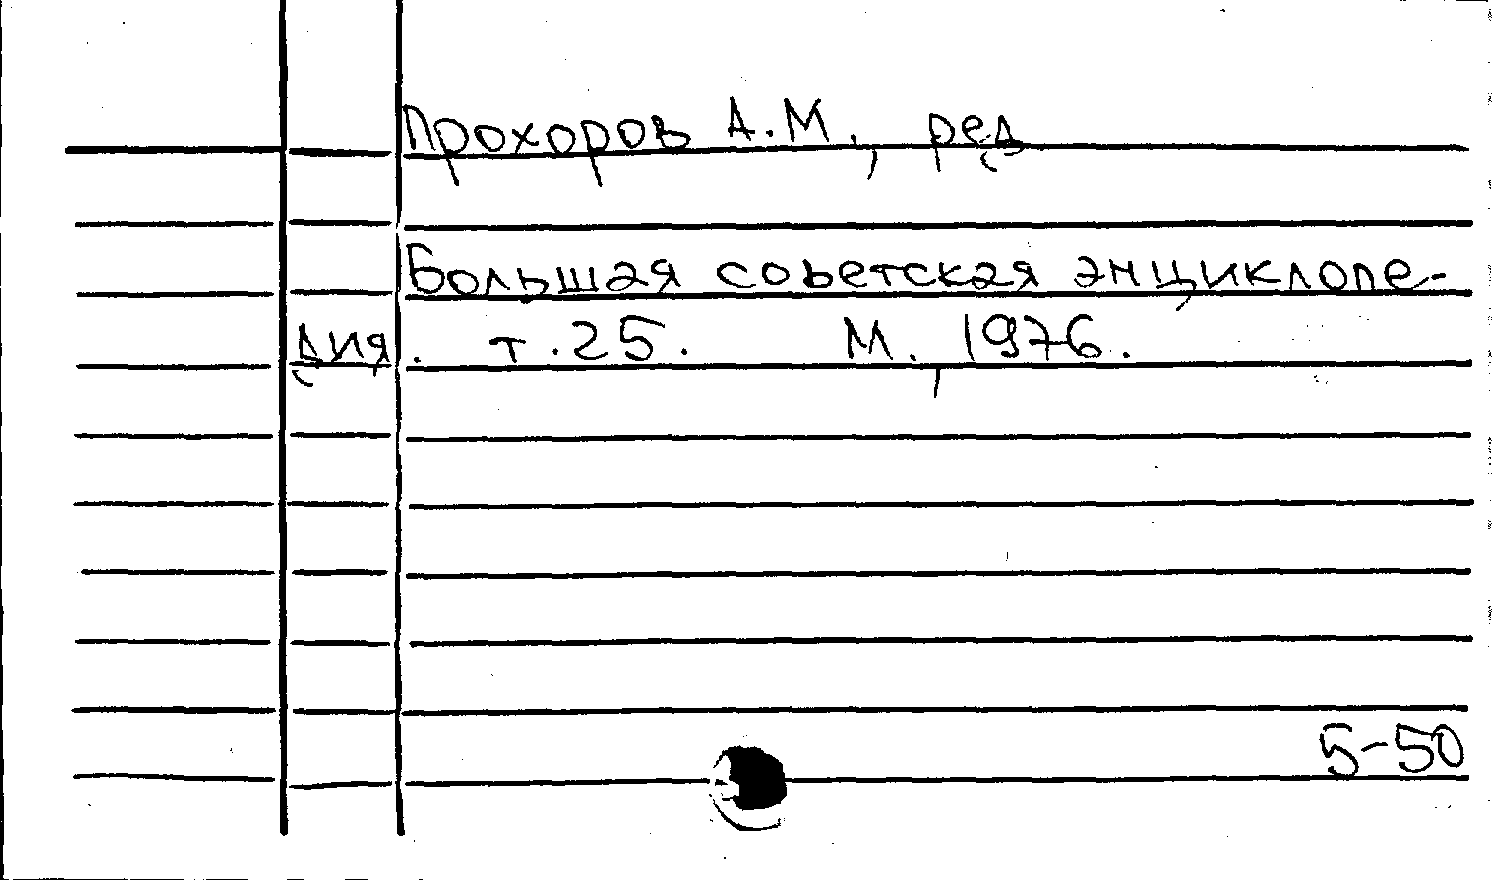 Прохоров А.М., ред
Большая советская энциклопе-
дия. т.25. М., 1976.
5-50